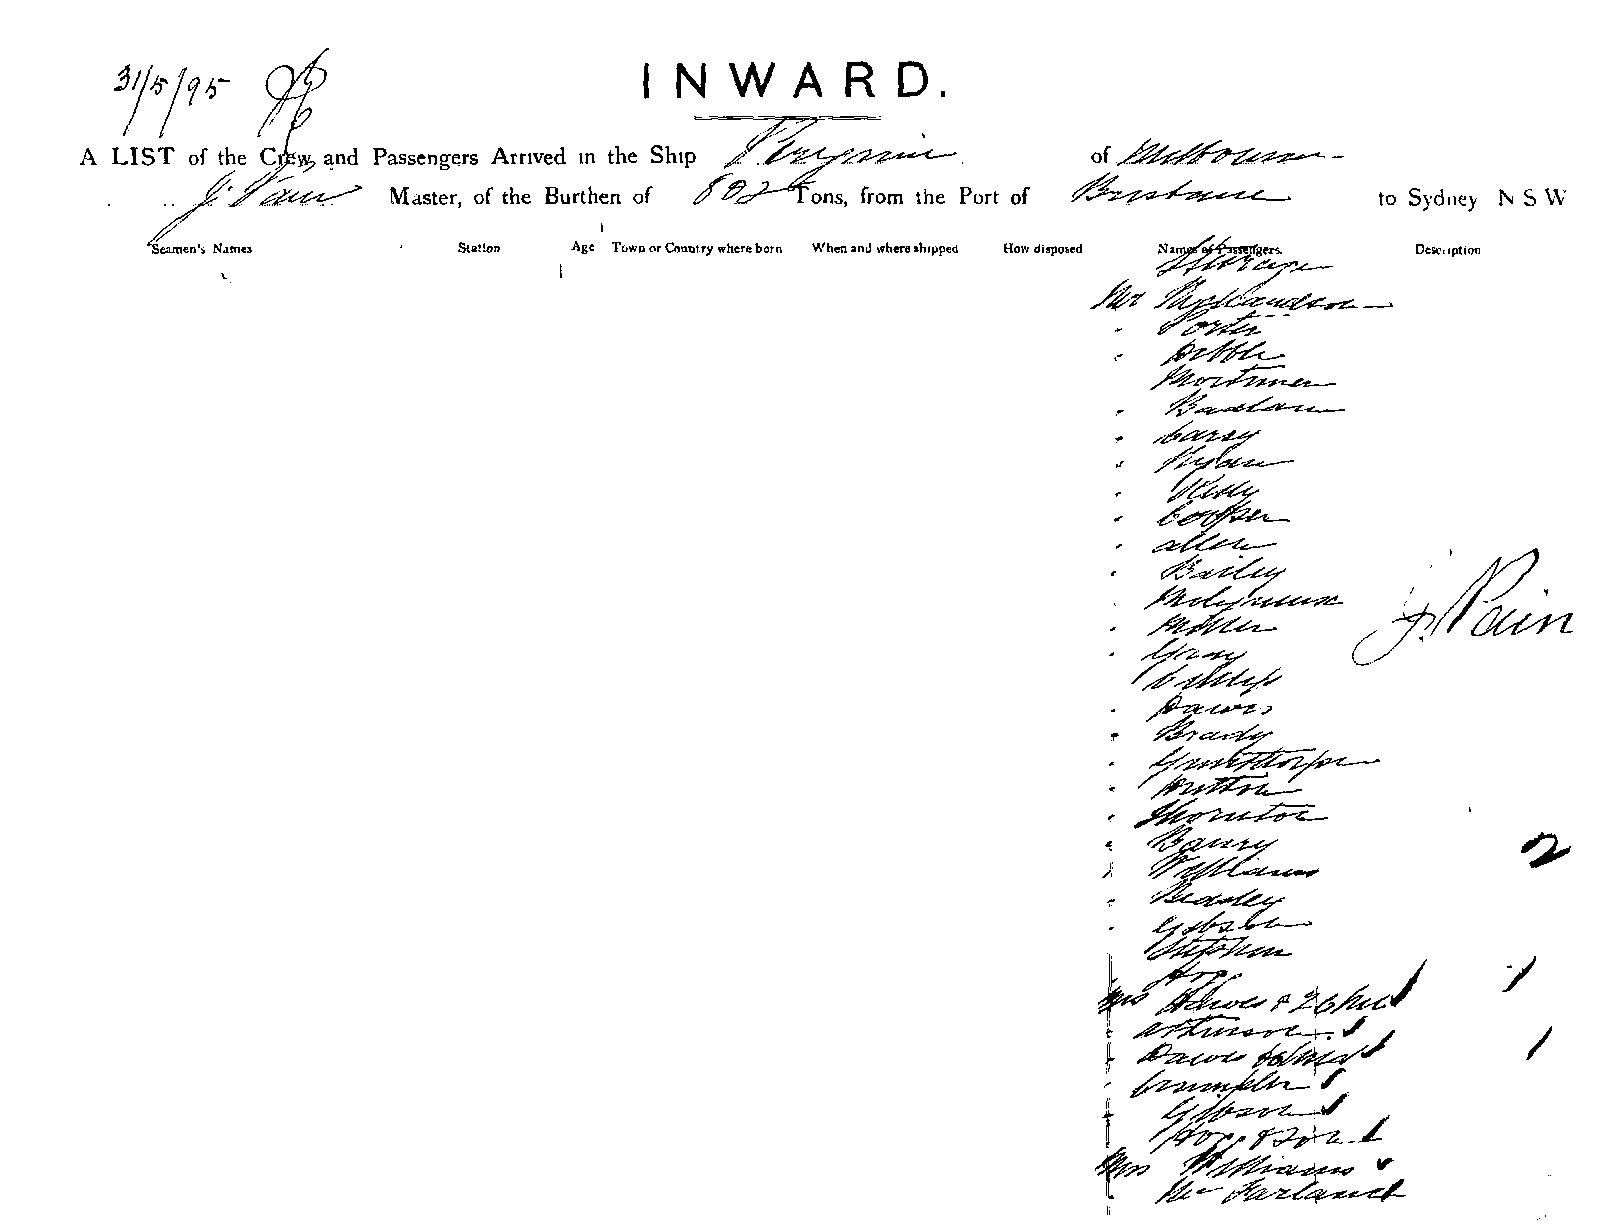 31/5/95
INWARD.
A LIST of the Crew, and Passengers Arrived in the Ship Peregrine of Melbourne
J. Pain Master, of the Burthen of 892 Tons, from the Port of Brisbane to Sydney N S W
Seamen's Names Station Age Town or Country where born When and where shipped How disposed Names of Passengers. Description
Steerage
Mr
" Porter
" Dibble
Mortimer
"
" Carey
" Ryan
" Kelly
" Cooper
" Allen
" Bailey
Molyneux
" Miller
" Gray
J. Pain
" Davis
" Brady
" Gunthorpe
" Hutton
" Thornton
" Barry
2
" Williams
" Beasley
" Gibson
Stephen
"
Mrs & 2 Child
1
" Atkinson
" Davis
1
" Crumpler
" Gibson
" & Son
Miss Williams
" McFarland